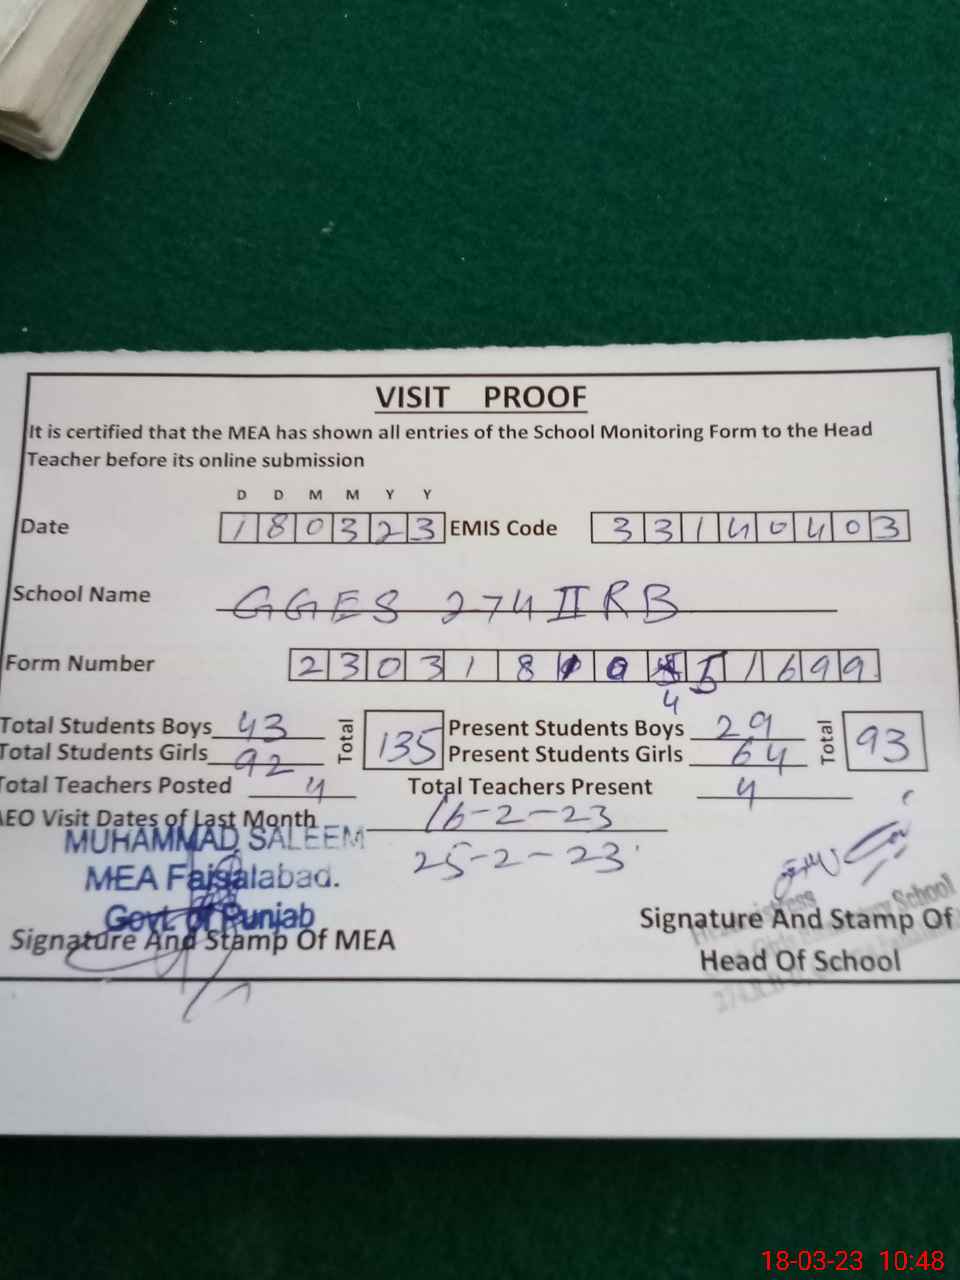 VISIT PROOF
It is certified that the MEA has shown all entries of the School Monitoring Form to the Head
Teacher before its online submission
D D M M Y Y
Date 180323 EMIS Code 33140403
School Name GGES 274 II RB
Form Number 230318 1699
4
Total Students Boys 43 Total 135 Present Students Boys 29 Total 93
Total Students Girls 92 Present Students Girls 64
Total Teachers Posted 4 Total Teachers Present 4
AEO Visit Dates of Last Month 16-2-23
MUHAMMAD SALEEM 25-2-23
MEA Faisalabad.
Govt. of Punjab
Signature And Stamp Of MEA
Signature And Stamp Of
Head Of School
School
18-03-23 10:48